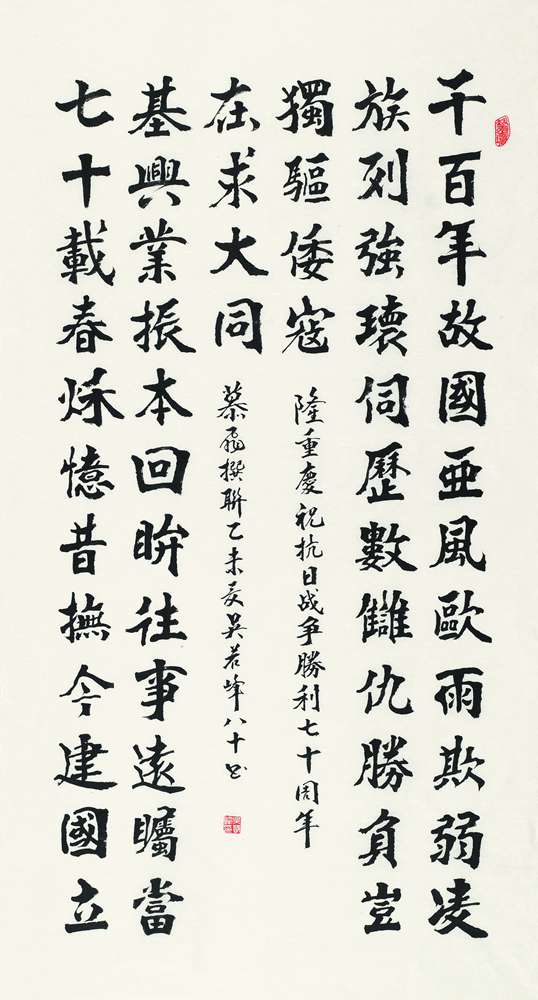 千百年故國亞風歐雨欺弱凌
族列強環伺歷數讎仇勝負豈
獨驅倭寇
隆重慶祝抗日战争勝利七十周年
七十載春秋憶昔撫今建國立
基興業振本回眸往事遠矚當
在求大同
慕撰聯乙未夏吴若峰八十书